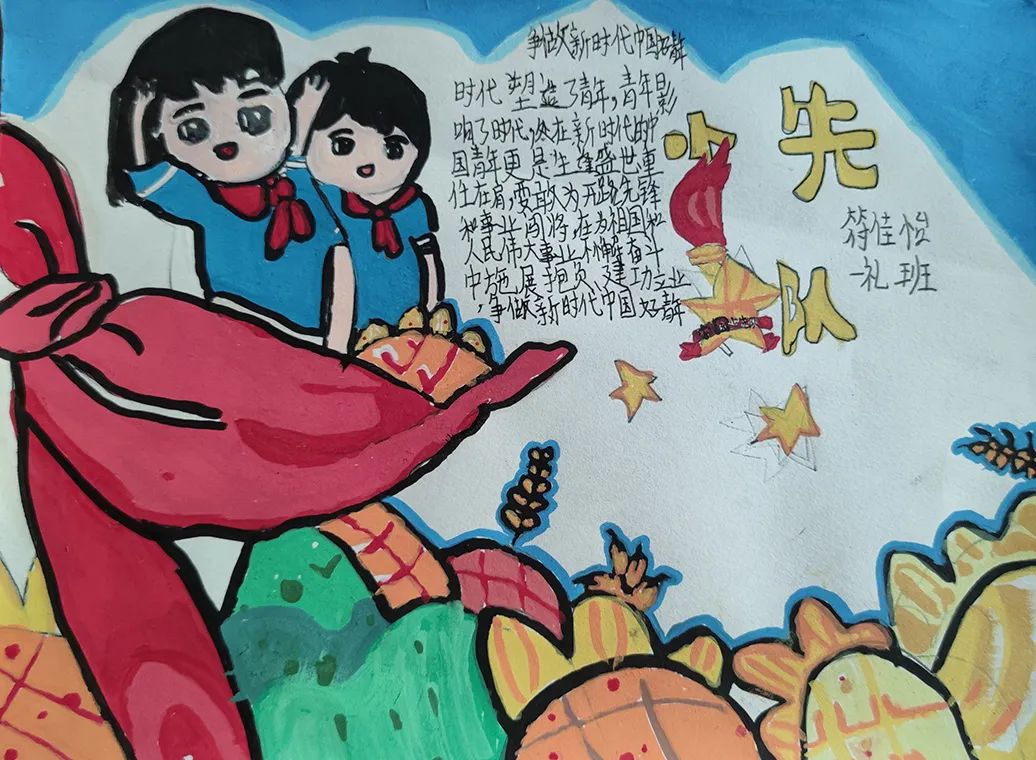 争做新时代中国好青年
时代塑造了青年,青年影
响了时代,终在新时代的中
国青年更是生逢盛世重
任在肩,要敢为开路先锋
和事业闯将,在为祖国和
人民伟大事业不懈奋斗
中施展抱负、建功立业
,争做新时代中国好青年
少
先
队
符佳怡
一礼班